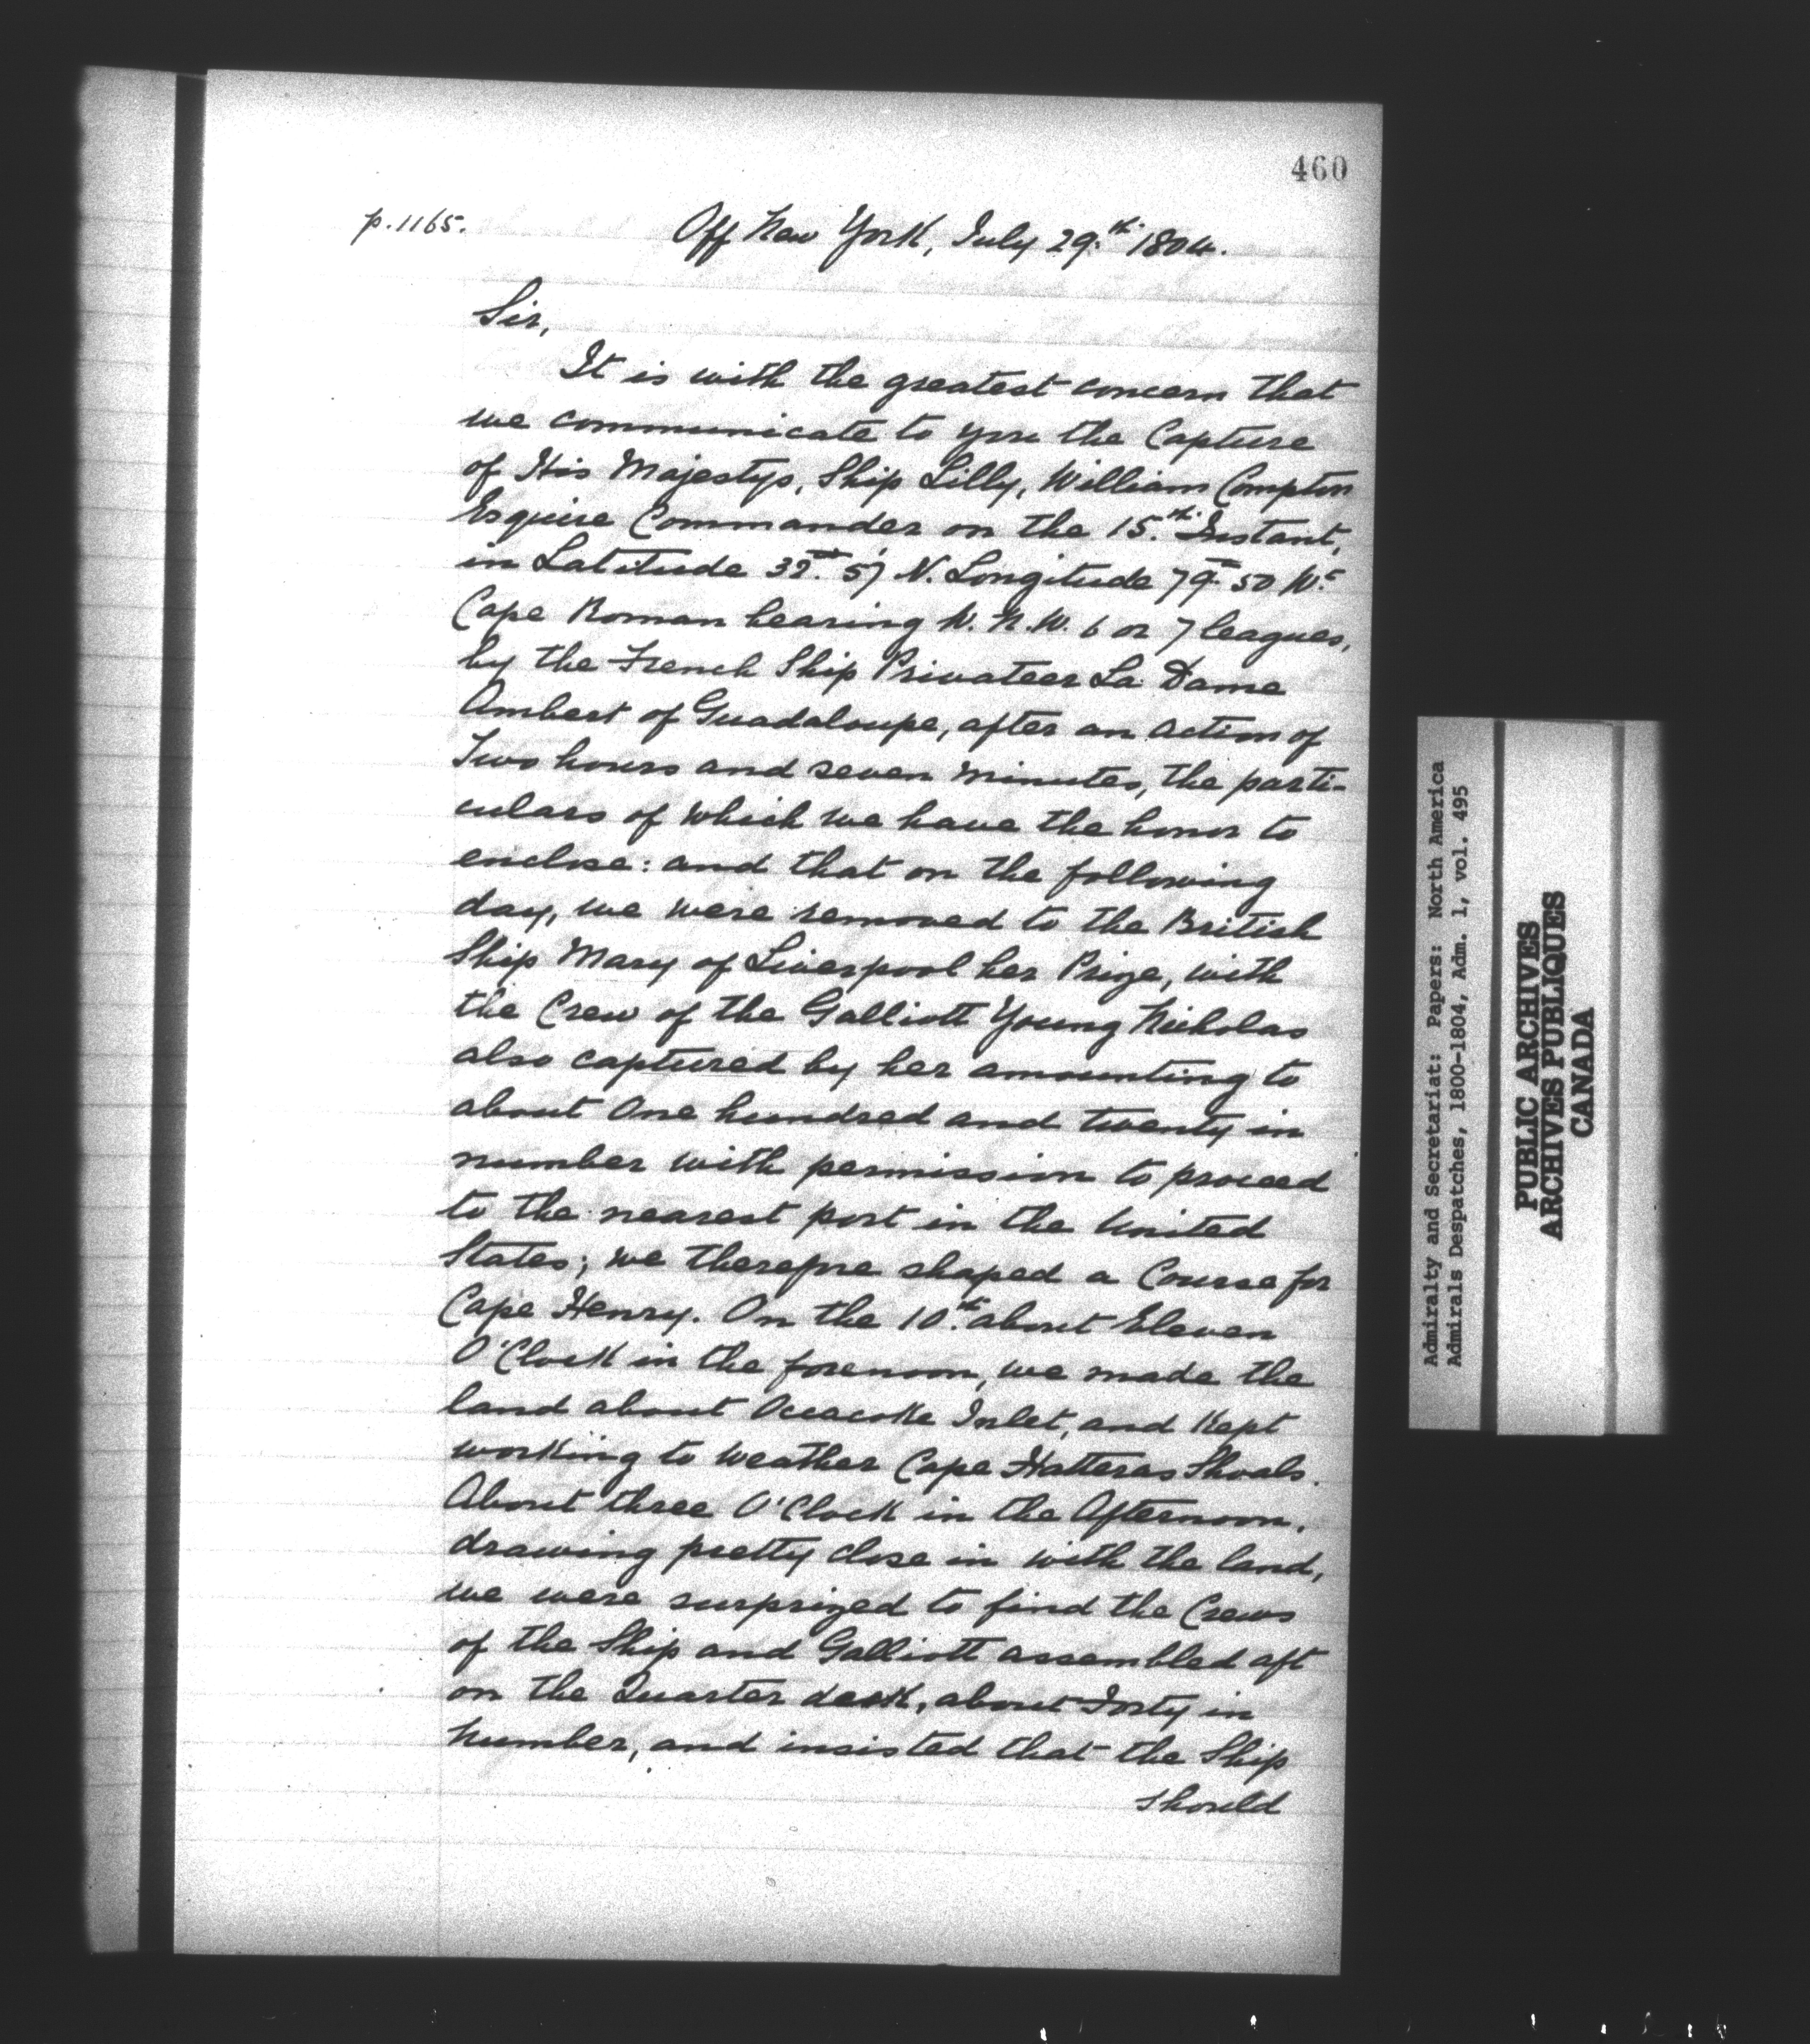 460
p. 1165.
Off New York, July 29.th 1804.
Sir,
It is with the greatest concern that
we communicate to you the Capture
of His Majestys, Ship Lilly, William Compton
Esquire Commander on the 15.th Instant,
in Latitude 32. 57 N. Longitude 79. 50 W.
Cape Roman bearing W. N. W. 6 or 7 leagues,
by the French Ship Privateer La Dame
Ambert of Guadaloupe, after an action of
Two hours and seven minutes, the parti-
culars of which we have the honor to
enclose: and that on the following
day, we were removed to the British
Ship Mary of Liverpool her Prize, with
the Crew of the Galliott Young Nicholas
also captured by her amounting to
about One hundred and twenty in
number with permission to proceed
to the nearest port in the United
States; we therefore shaped a Course for
Cape Henry. On the 10.th about Eleven
O'Clock in the forenoon, we made the
land about Occacoke Inlet, and Kept
working to weather Cape Hatteras Shoals.
About three O'Clock in the Afternoon,
drawing pretty close in with the land,
we were surprized to find the Crews
of the Ship and Galliott assembled aft
on the Quarter deck, about Forty in
Number, and insisted that the Ship
should
Admiralty and Secretariat: Papers: North America
Admirals Despatches, 1800-1804, Adm. 1, vol. 495
PUBLIC ARCHIVES
ARCHIVES PUBLIQUES
CANADA